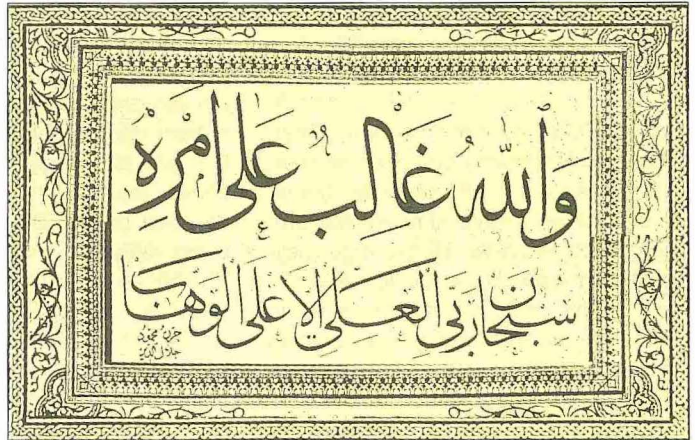 وَاللهُ غَالِبٌ عَلَى اَمْرِهِ
سبحان ربي العلي الاعلى الوهاب
محمود
جلال الدين